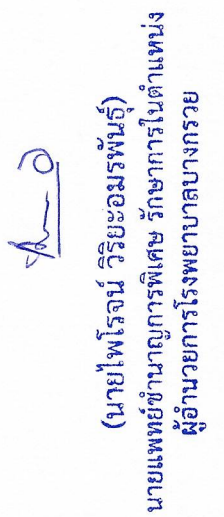 (นายไพโรจน์ วิริยะอมรพันธุ์)
นายแพทย์ชำนาญการพิเศษ รักษาการในตำแหน่ง
ผู้อำนวยการโรงพยาบาลบางกรวย